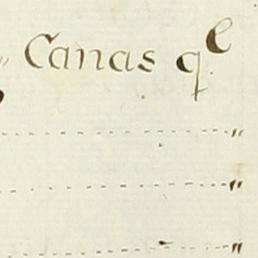 " Canas q^e
"
"
"